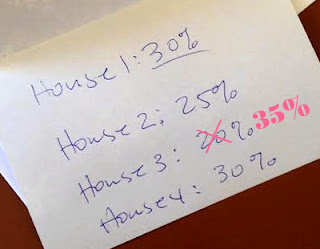 House 1: 30%
House 2: 25%
House 3: 20% 35%
House 4: 30%